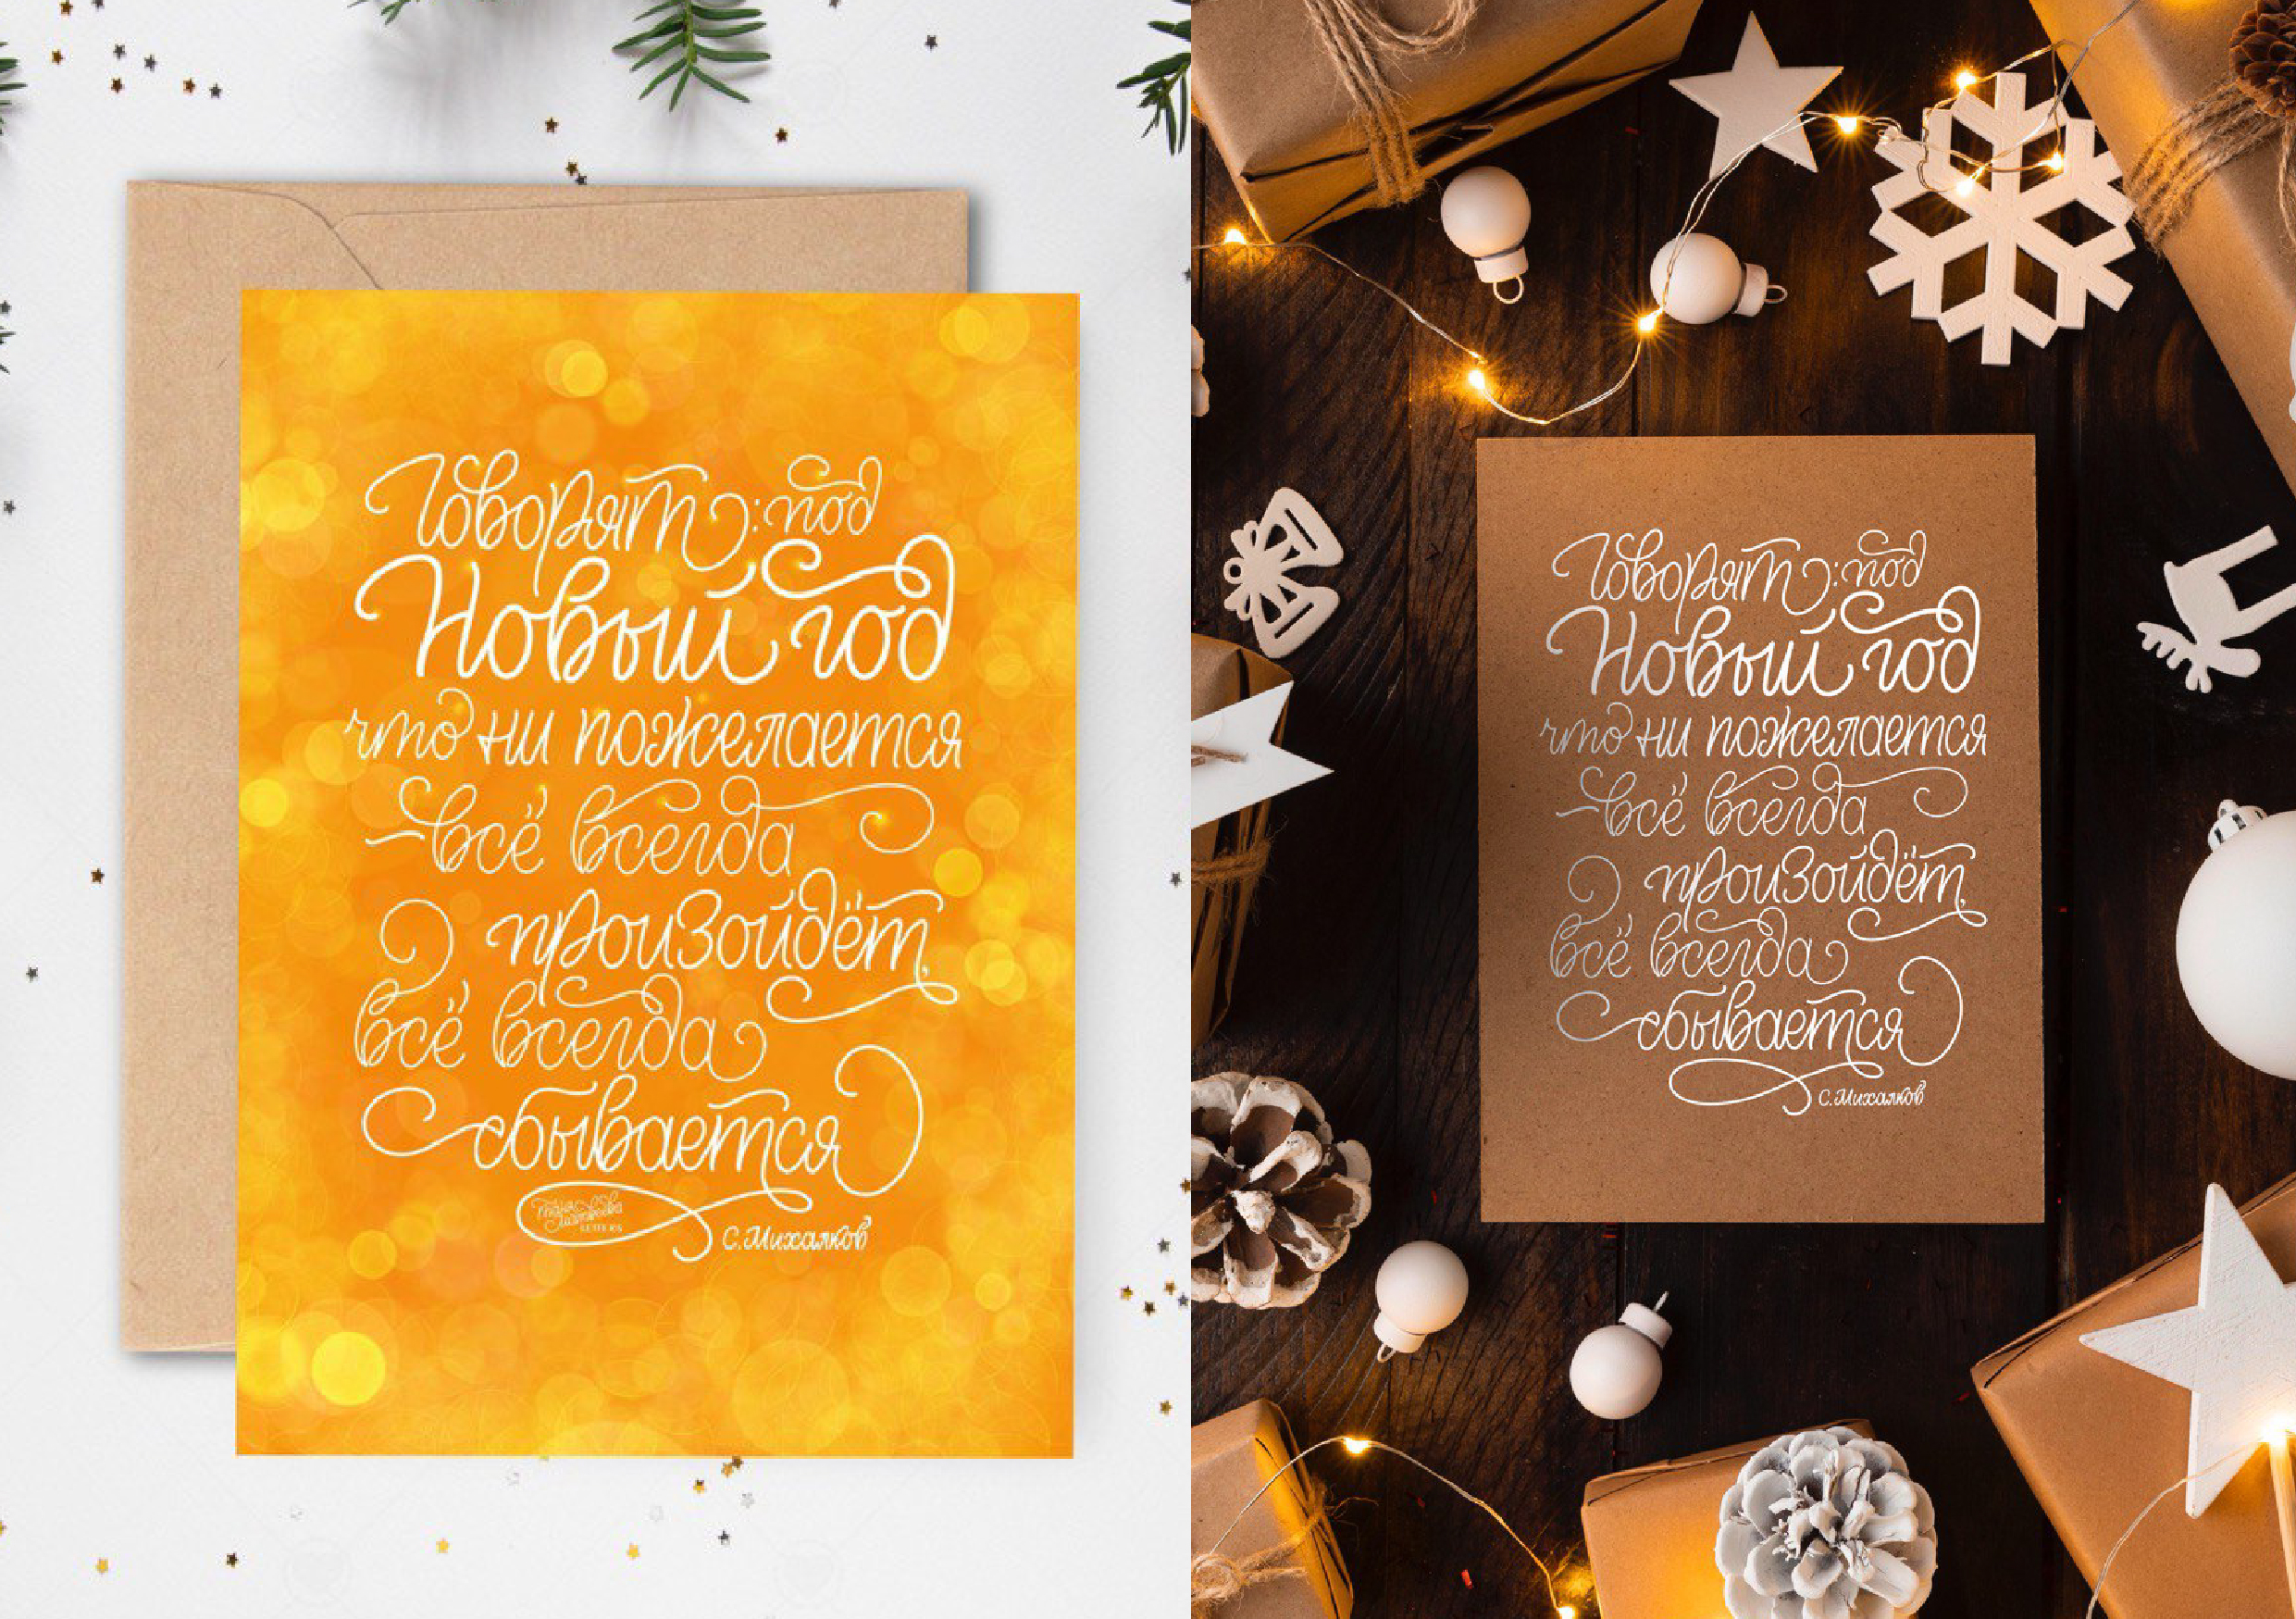 Говорят: под
Новый год
что ни пожелается
– всё всегда
произойдёт,
всё всегда
сбывается
LETTERS
С. Михалков
Говорят: под
Новый год
что ни пожелается
– всё всегда
произойдёт,
всё всегда
сбывается
С. Михалков